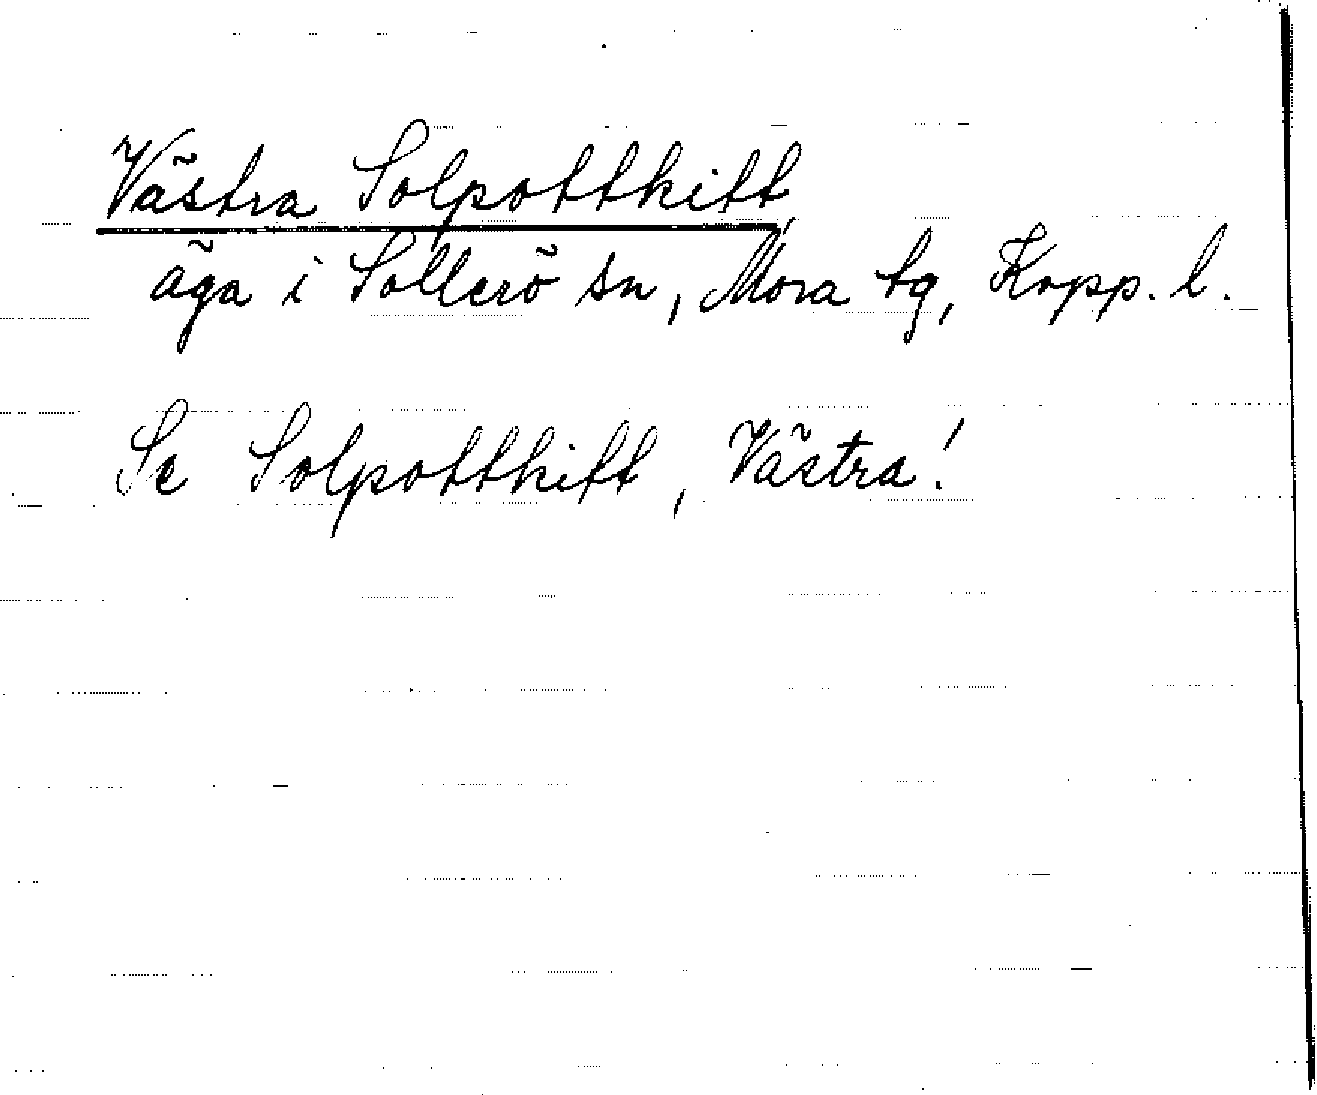 Västra Solpottkitt
äga i Sollerö sn, Mora tg, Kopp. l.
Se Solpottkitt, Västra!